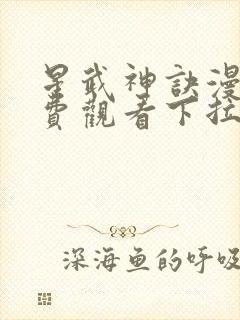 星武神訣漫
費觀看下拉
深海鱼的呼吸